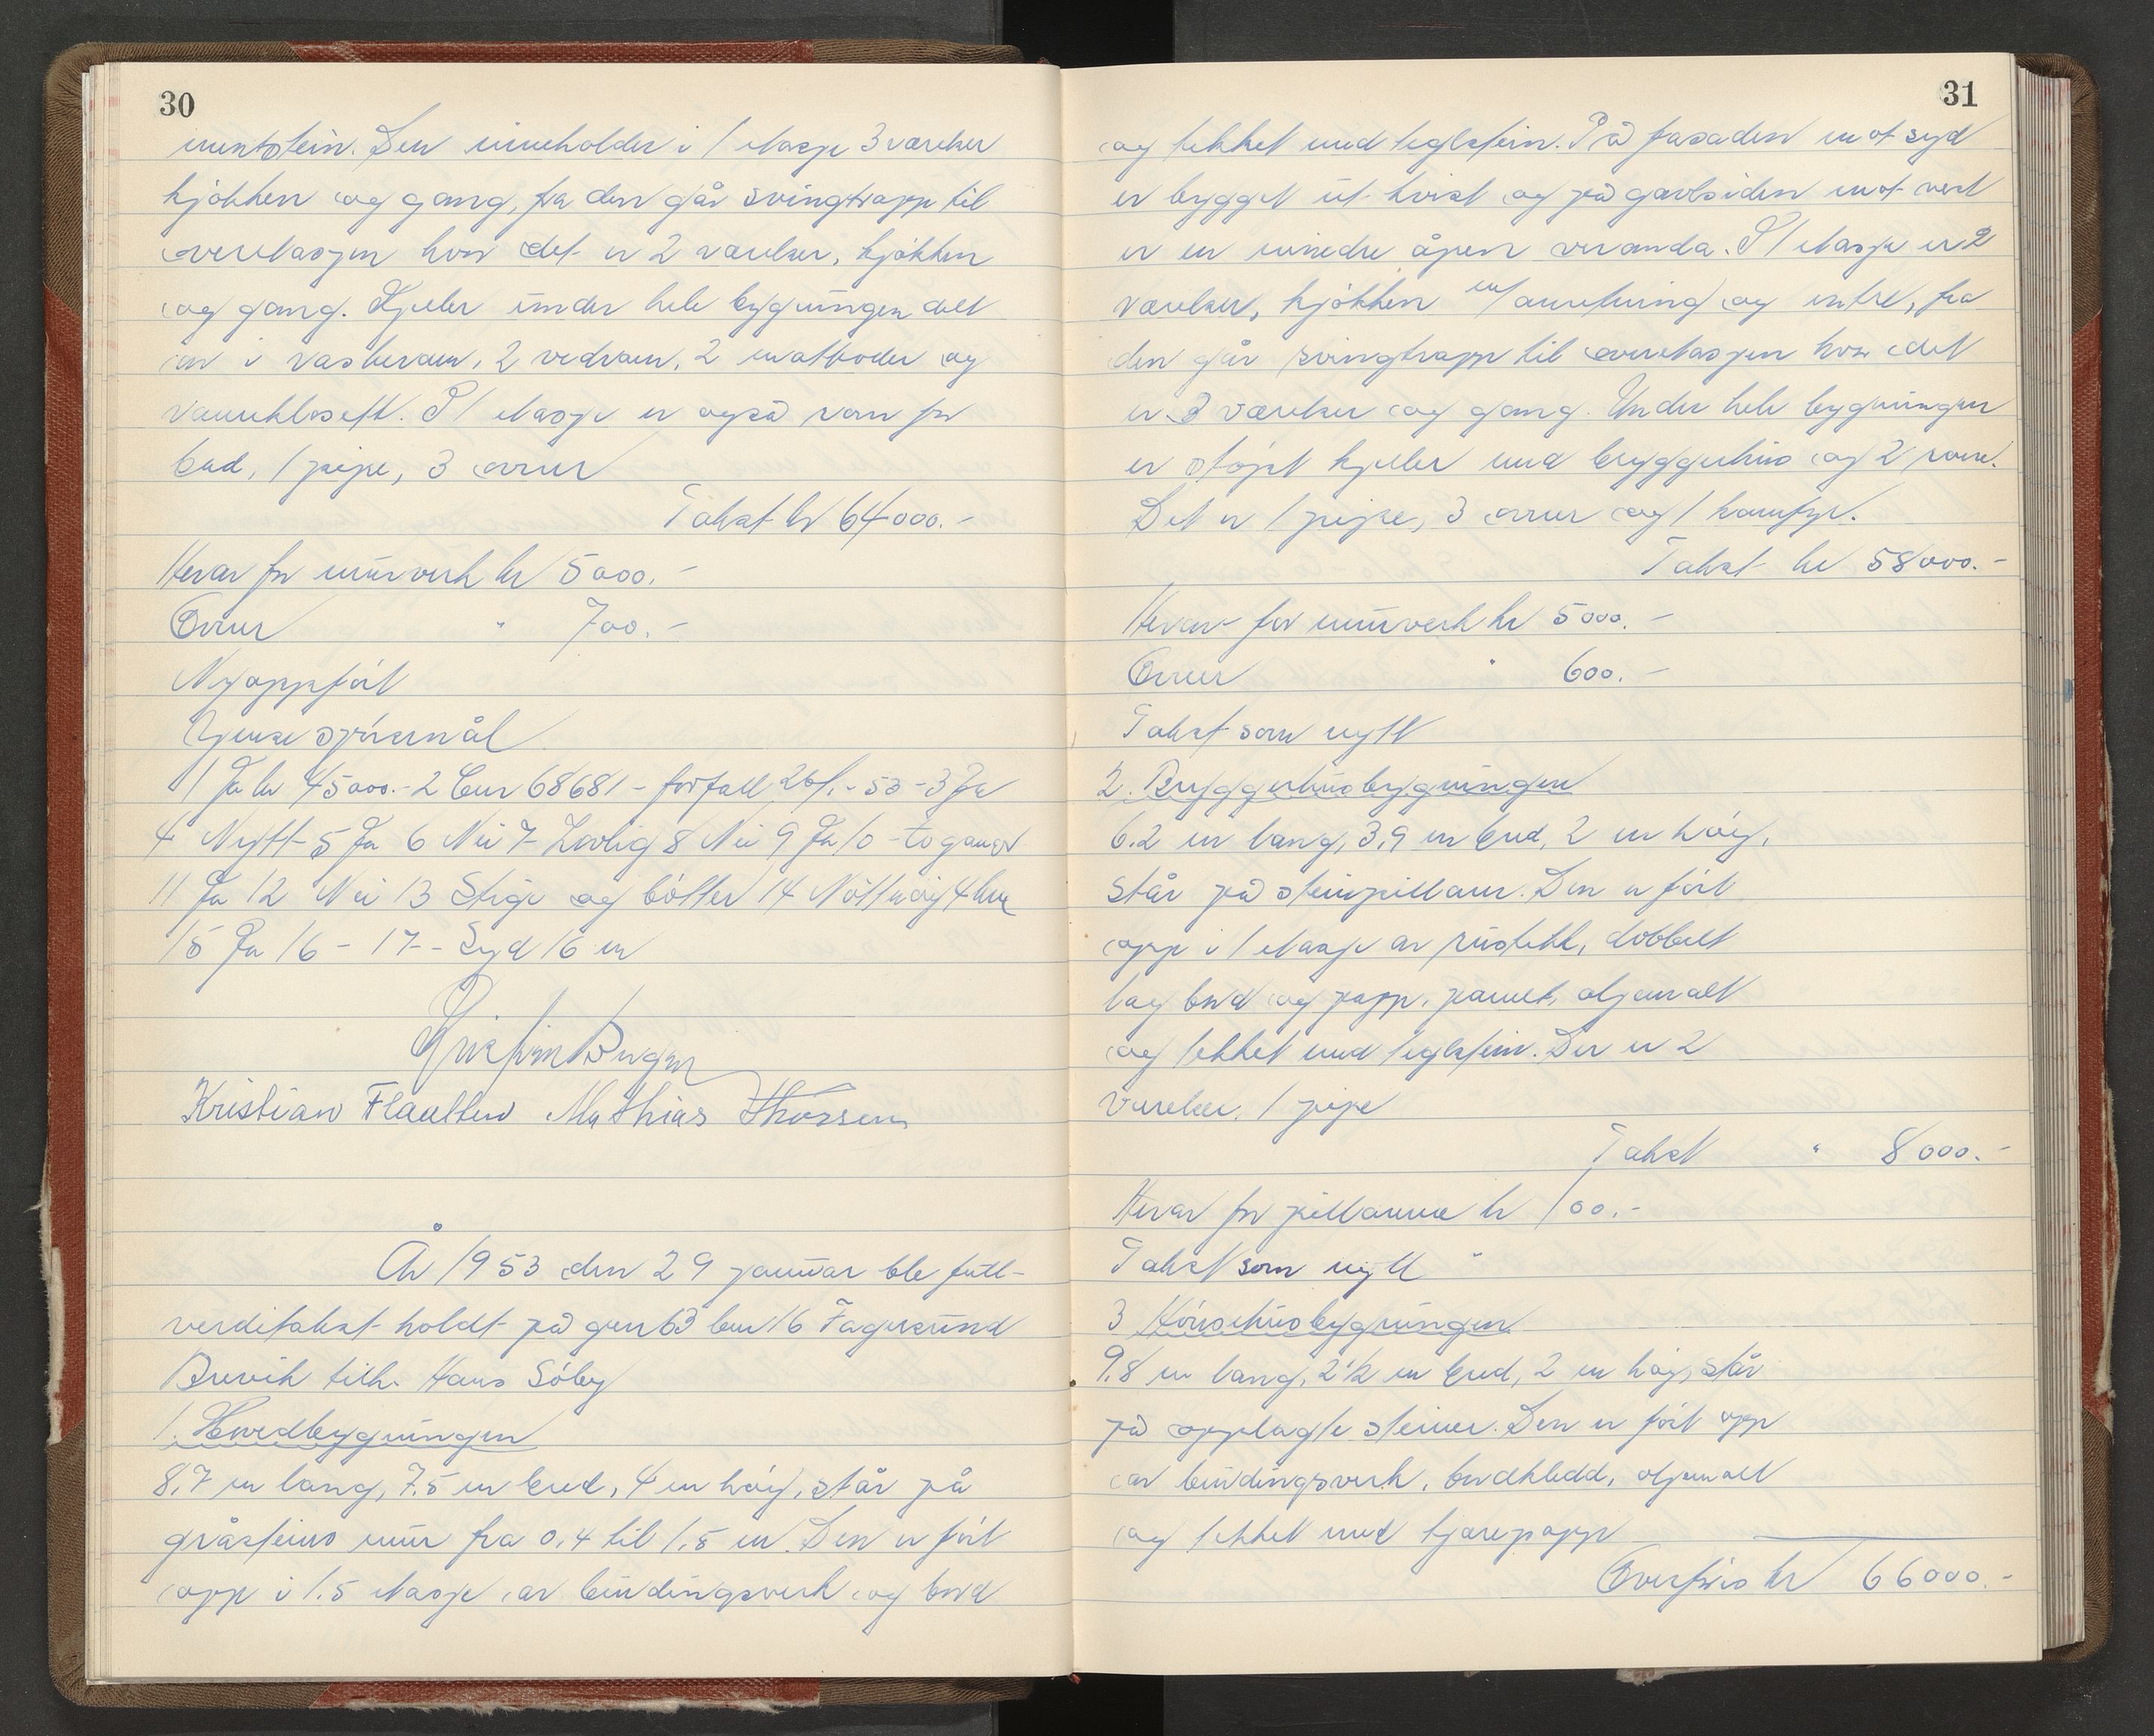 30
mentstein. Den inneholder i 1 etasje 3 værelser
kjøkken og gang, fra den går svingtrapp til
overetasjen hvor det er 2 værelser, kjøkken
og gang. Kjeller under hele bygningen delt
inn i vaskerom, 2 vedrom, 2 matboder og
vannklosett. I 1 etasje er også rom for
bad, 1 pipe, 3 ovner
Takst kr 64000.-
Herav for murverk kr 5000.-
Ovner " 700.-
Nyoppført
Ymse spørsmål
1 Ja kr 45000.- 2 Bnr 68681 - forfall 26/1.-53 - 3 Ja
4 Nytt - 5 Ja 6 Nei 7 - 8 Nei 9 Ja 10 - to ganger
11 Ja 12 Nei 13 Stige og bøtter 14 4 km
15 Ja 16 - 17 - Syd 16 m
Kristian Mathias
År 1953 den 29 januar ble full-
verditakst holdt på gnr 63 bnr 16 Fagersund
Brevik tilh. Hans Søby
1. Hovedbygningen
8,7 m lang, 7.5 m bred, 4 m høy, står på
gråsteins mur fra 0,4 til 1.5 m. Den er ført
opp i 1.5 etasje av bindingsverk og bord
31
og tekket med teglstein. På fasaden mot syd
er bygget ut kvist og på gavlsiden mot vest
er en mindre åpen veranda. I 1 etasje er 2
værelser, kjøkken m/ anretning og entre, fra
den går svingtrapp til overetasjen hvor det
er 3 værelser og gang. Under hele bygningen
er støpt kjeller med bryggerhus og 2 rom.
Det er 1 pipe, 3 ovner og 1 komfyr.
Takst kr 58000.-
Herav for murverk kr 5000.-
Ovner " 600.-
Takst som nytt
2. Bryggerhusbygningen
6.2 m lang, 3,9 m bred, 2 m høy,
står på steinpillarer. Den er ført
opp i 1 etasje av pustekk, dobbelt
lag bord og papp, panelt, oljemalt
og tekket med teglstein. Der er 2
værelser. 1 pipe
Takst " 8000.-
Herav for pillarene kr 100.-
Takst som nytt "
3 Hønsehusbygningen
9.8 m lang, 2 1/2 m bred, 2 m høy, står
på opplagte steiner. Den er ført opp
av bindingsverk, bordkledd, oljemalt
og tekket med tjærepapp
Overføres kr 66000.-